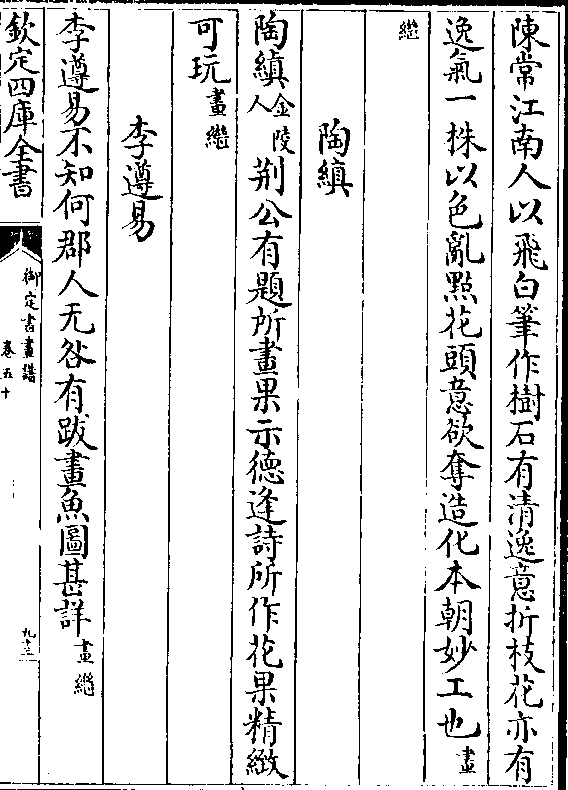 陳常江南人以飛白筆作樹石有清逸意折枝花亦有
逸氣一株以色亂點花頭意欲奪造化本朝妙工也畫
繼
陶縝
陶縝金陵人荆公有題所畫果示德逢詩所作花果精緻
可玩畫繼
李遵易
李遵易不知何郡人无咎有跋畫魚圖甚詳畫繼
欽定四庫全書
御定書畫譜
卷五十
九十三